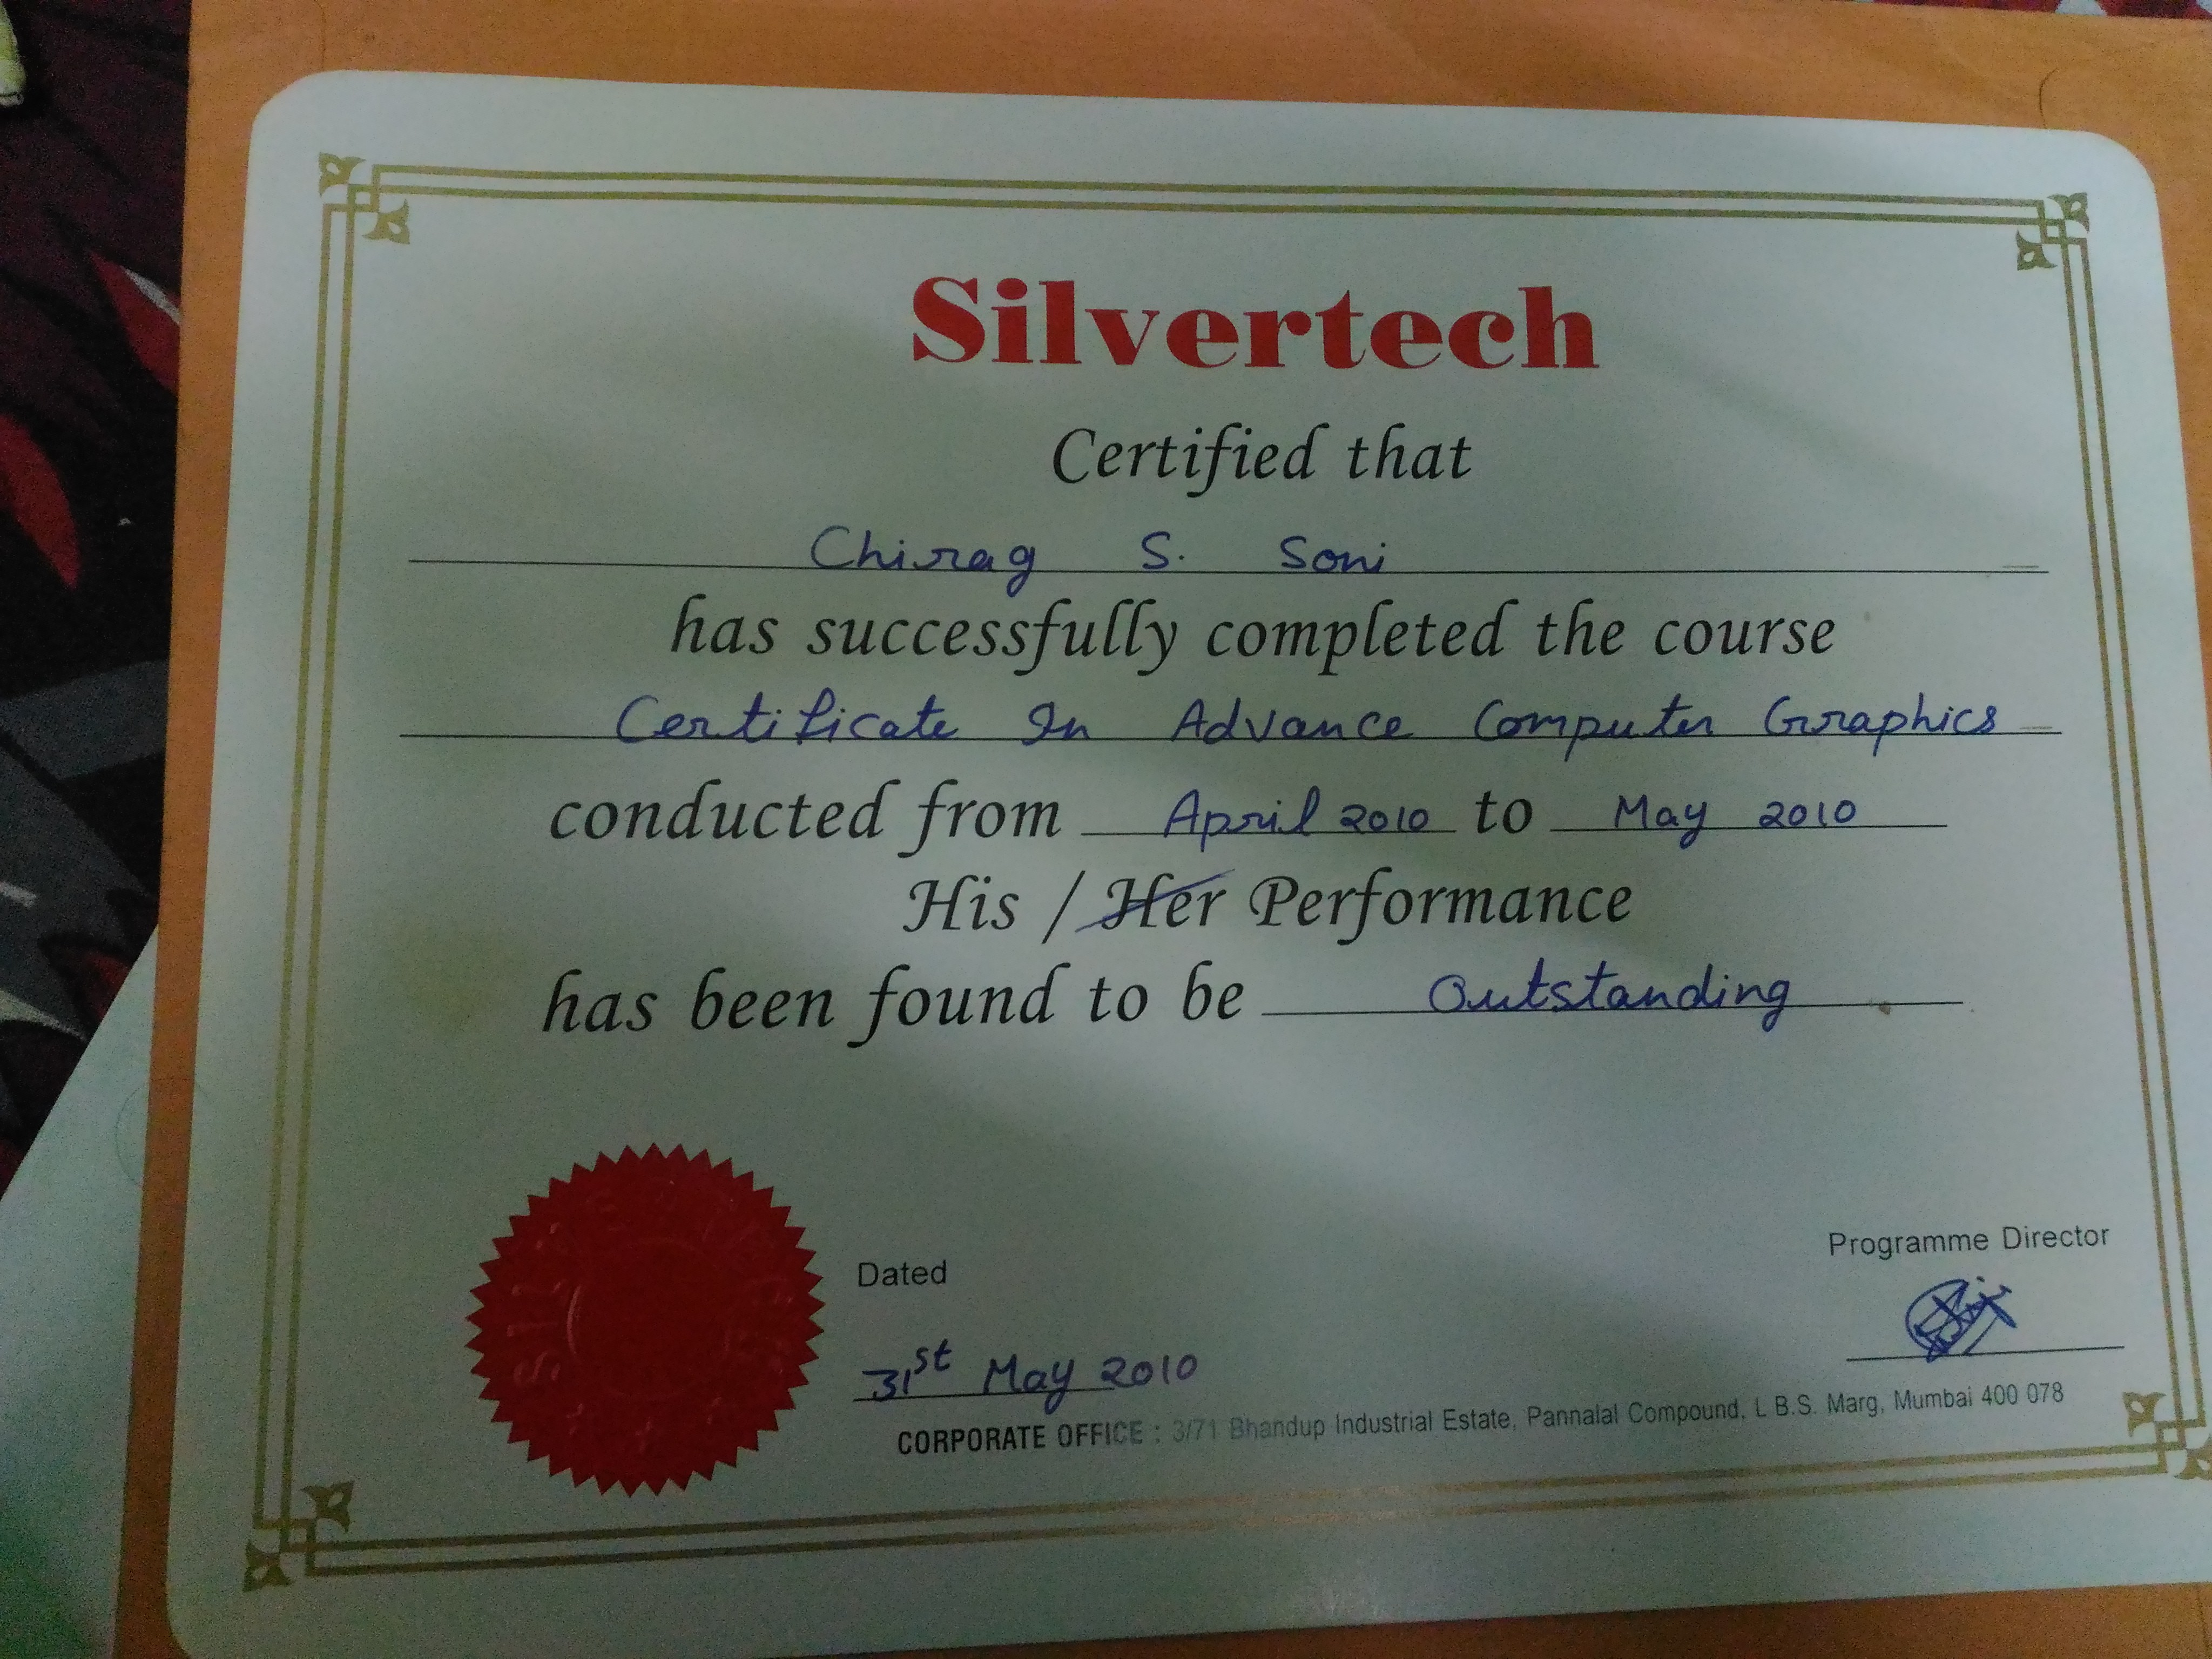 Silvertech
Certified that
Chirag S. Soni
has successfully completed the course
Certificate In Advance Computer Graphics
conducted from April 2010 to May 2010
His / Her Performance
has been found to be Outstanding
Dated
31st May 2010
Programme Director
CORPORATE OFFICE : 3/71 Bhandup Industrial Estate, Pannalal Compound, L.B.S. Marg, Mumbai 400 078